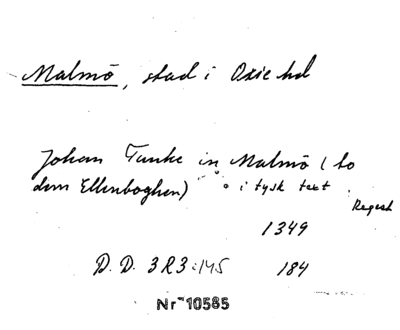 Malmö, stad i Oxie hd
Johan Tanke in Malmö (to
dem Ellenboghen) i tysk text
Regest
1349
D. D. 3R3:145 184
Nr 10585